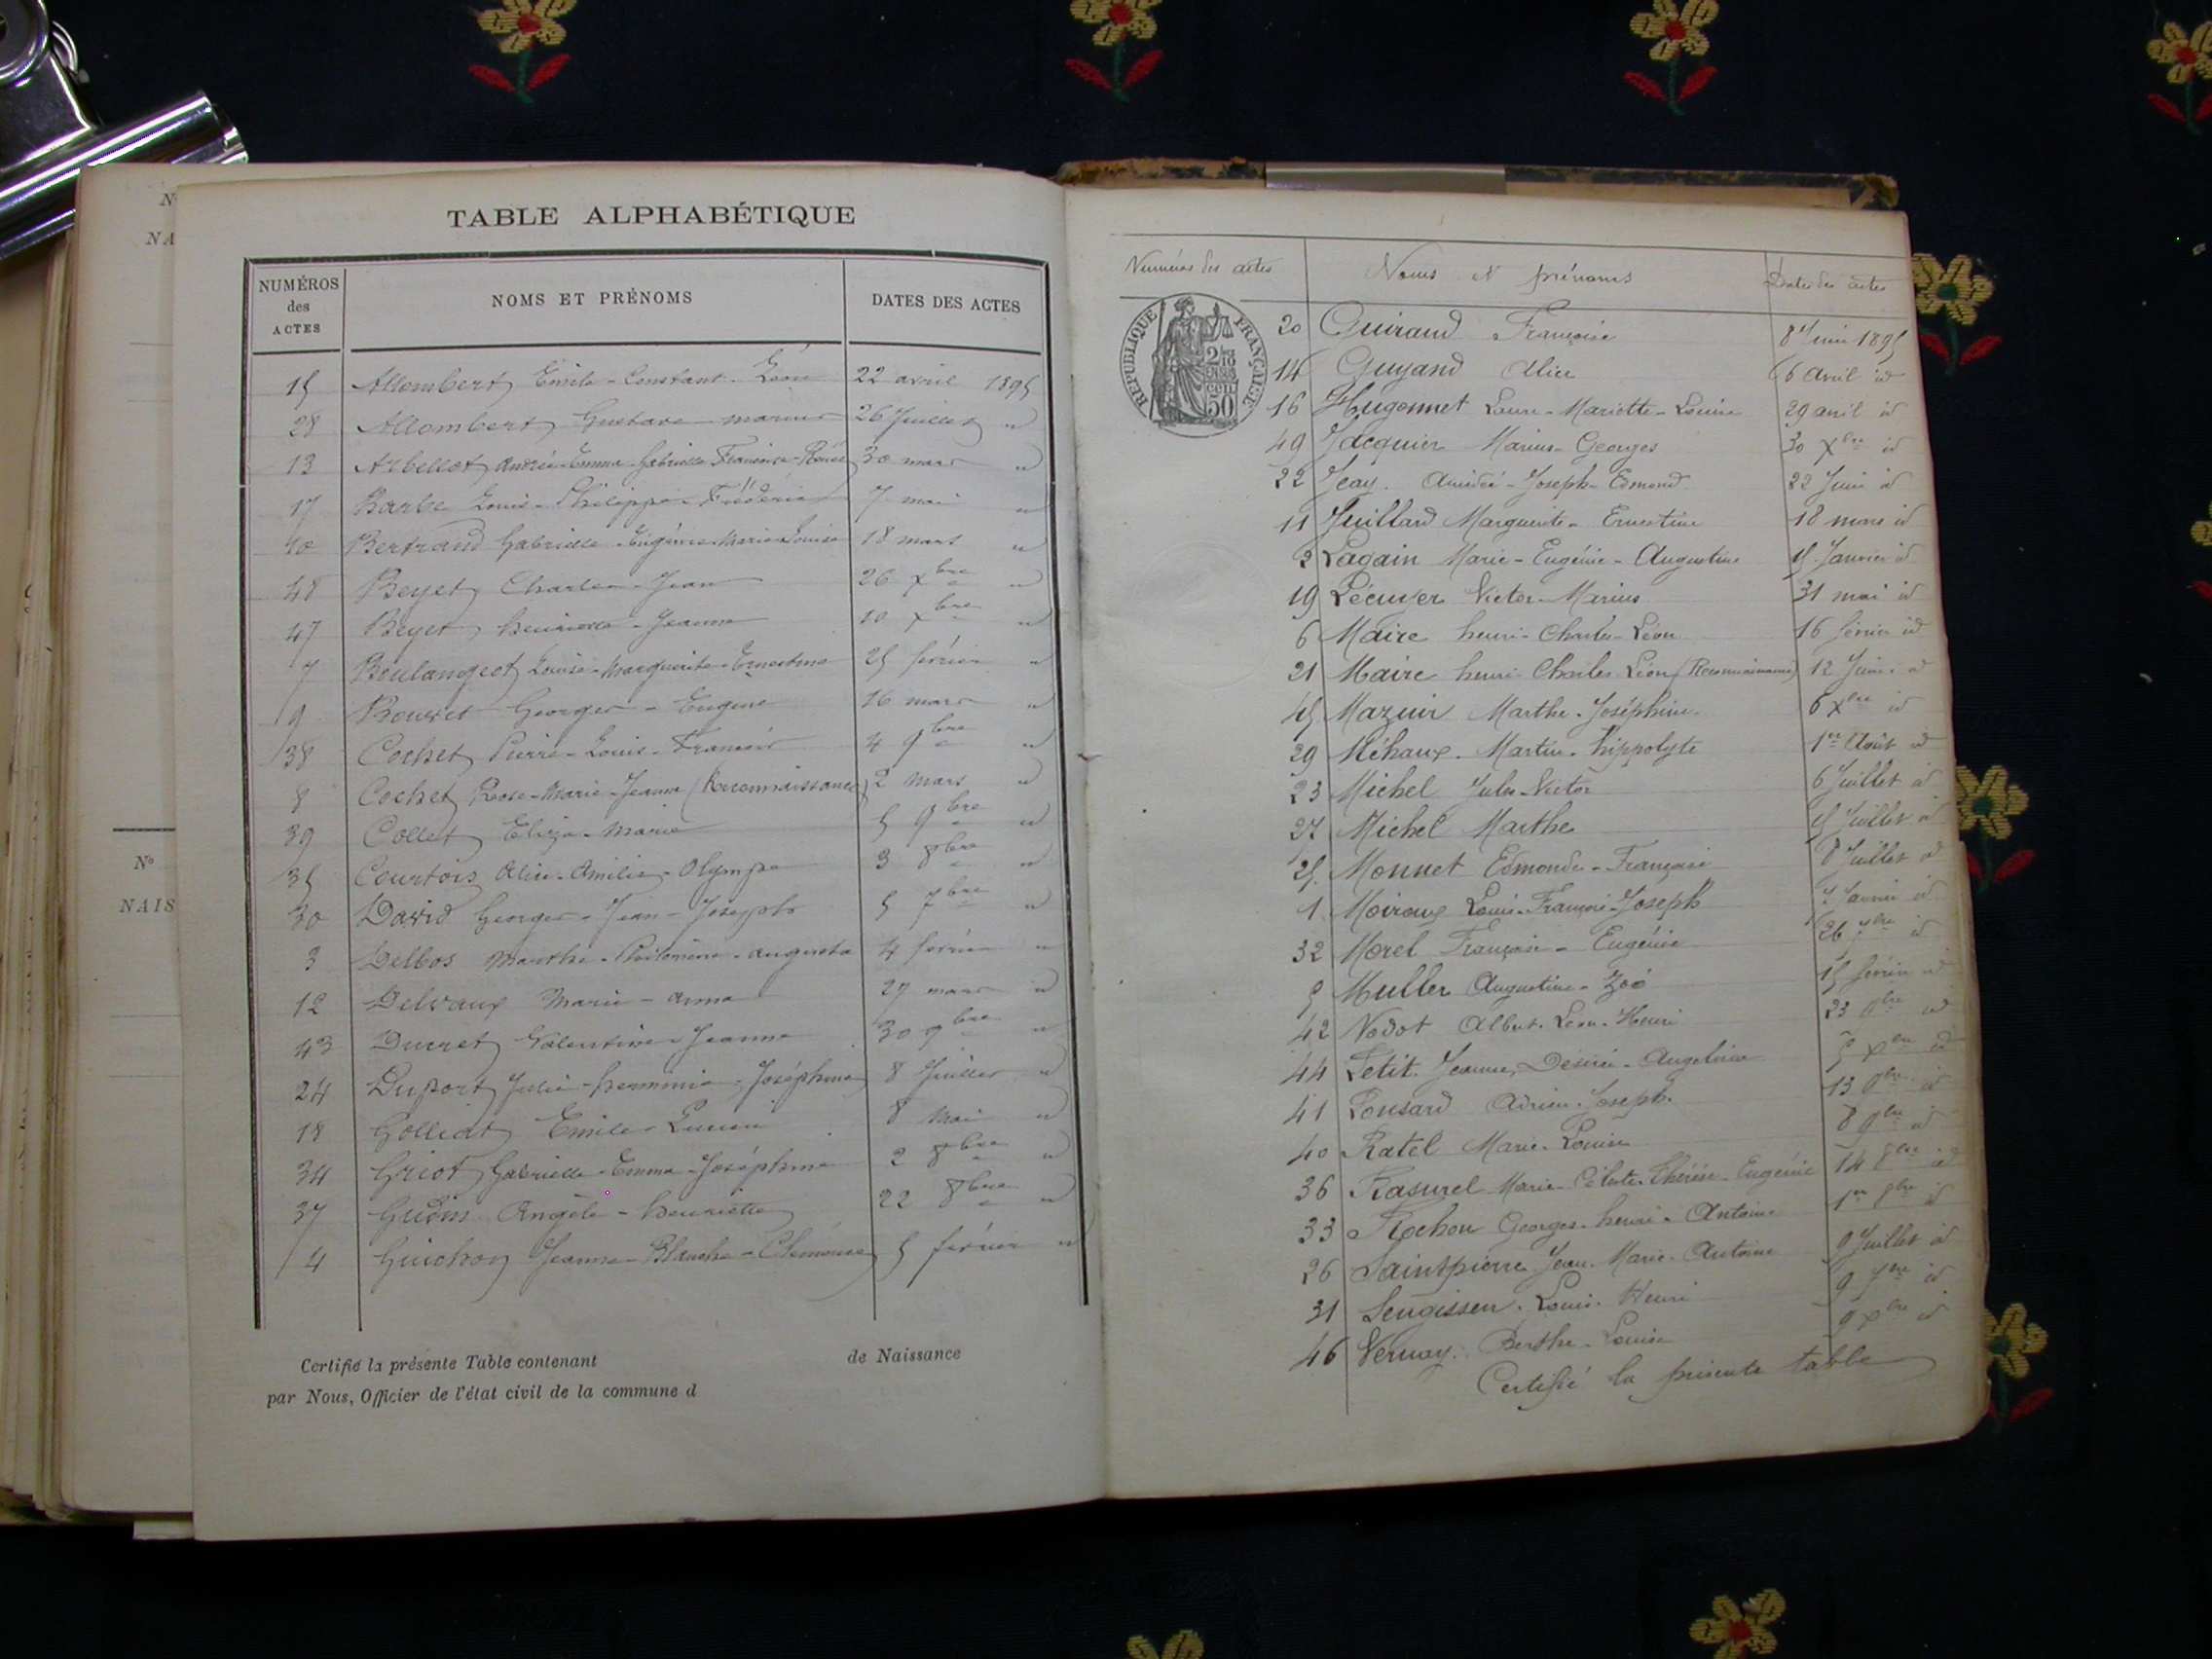 N
NA
Nº
NAIS
TABLE ALPHABÉTIQUE
NUMÉROS
des
ACTES
NOMS ET PRÉNOMS
DATES DES ACTES
15 Allombert Emile-Constant-Léon 22 avril 1895
28 Allombert Gustave-Marius 26 Juillet id
13 Arbellot Emma-Gabrielle 30 mars id
17 Barbe Louis-Philippe-Frédéric 7 mai id
10 Bertrand Gabrielle-Eugénie-Marie-Louise 18 mars id
48 Beyet Charles-Jean 26 Xbre id
47 Beyet Jeanne 10 Xbre id
7 Boulangeot Louise-Marguerite-Ernestine 25 février id
9 Bouvret Georges-Eugène 16 mars id
38 Cochet Pierre-Louis-François 4 9bre id
8 Cochet Rose-Marie-Jeanne (Reconnaissance) 2 mars id
39 Collet Eliza-Marie 5 9bre id
35 Courtois Alice-Amélie-Olympe 3 8bre id
30 David Georges-Jean-Joseph 5 7bre id
3 Delbos Marthe-Philomène-Augusta 4 février id
12 Delvaux Marie-Anna 27 mars id
43 Ducret Valentine-Jeanne 30 9bre id
24 Duport Julie-Herminie-Joséphine 8 Juillet id
18 Golliat Emile-Lucien 8 Mai id
34 Griot Gabrielle-Emma-Joséphine 2 8bre id
37 Angèle-Henriette 22 8bre id
4 Guichon Jeanne-Blanche-Clémence 5 février id
Certifié la présente Table contenant de Naissance
par Nous, Officier de l'état civil de la commune d
Numéros des actes Noms et prénoms Dates des actes
REPUBLIQUE FRANÇAISE
50
20 Guiraud Françoise 8 Juin 1895
14 Guyand Alice 6 avril id
16 Hugonnet Laure-Mariette-Louise 29 avril id
49 Jacquier Marius-Georges 30 Xbre id
22 Jeay. Amédée-Joseph-Edmond 22 Juin id
11 Juillard Marguerite-Ernestine 18 mars id
2 Lagain Marie-Eugénie-Augustine 15 Janvier id
19 Lécuyer Victor-Marius 31 mai id
6 Maire henri-Charles-Léon 16 février id
21 Maire henri-Charles-Léon (Reconnaissance) 12 Juin id
45 Mazuir Marthe-Joséphine 6 Xbre id
29 Méhaux. Martin-hippolyte 1er Août id
23 Michel Jules-Victor 6 Juillet id
27 Michel Marthe 15 Juillet id
25. Monnet Edmonde-Françoise 8 Juillet id
1 Moiroux Louis-François-Joseph Janvier id
32 Morel Françoise-Eugénie 26 7bre id
5 Muller Augustine-Zoé 15 février id
42 Nodot Albert-Léon-Henri 23 9bre id
44 Petit. Jeanne, Désirée-Angeline 5 Xbre id
41 Ponsard Adrien-Joseph. 13 9bre id
40 Ratel Marie-Louise 8 9bre id
36 Rasurel Marie-Céleste-Thérèse-Eugénie 14 8bre id
33 Rochon Georges-henri-Antoine 1er 8bre id
26 Saintpierre Jean-Marie-Antoine 9 Juillet id
31 Louis-Henri 9 7bre id
46 Vernay. Berthe-Louise 9 Xbre id
Certifié la présente table